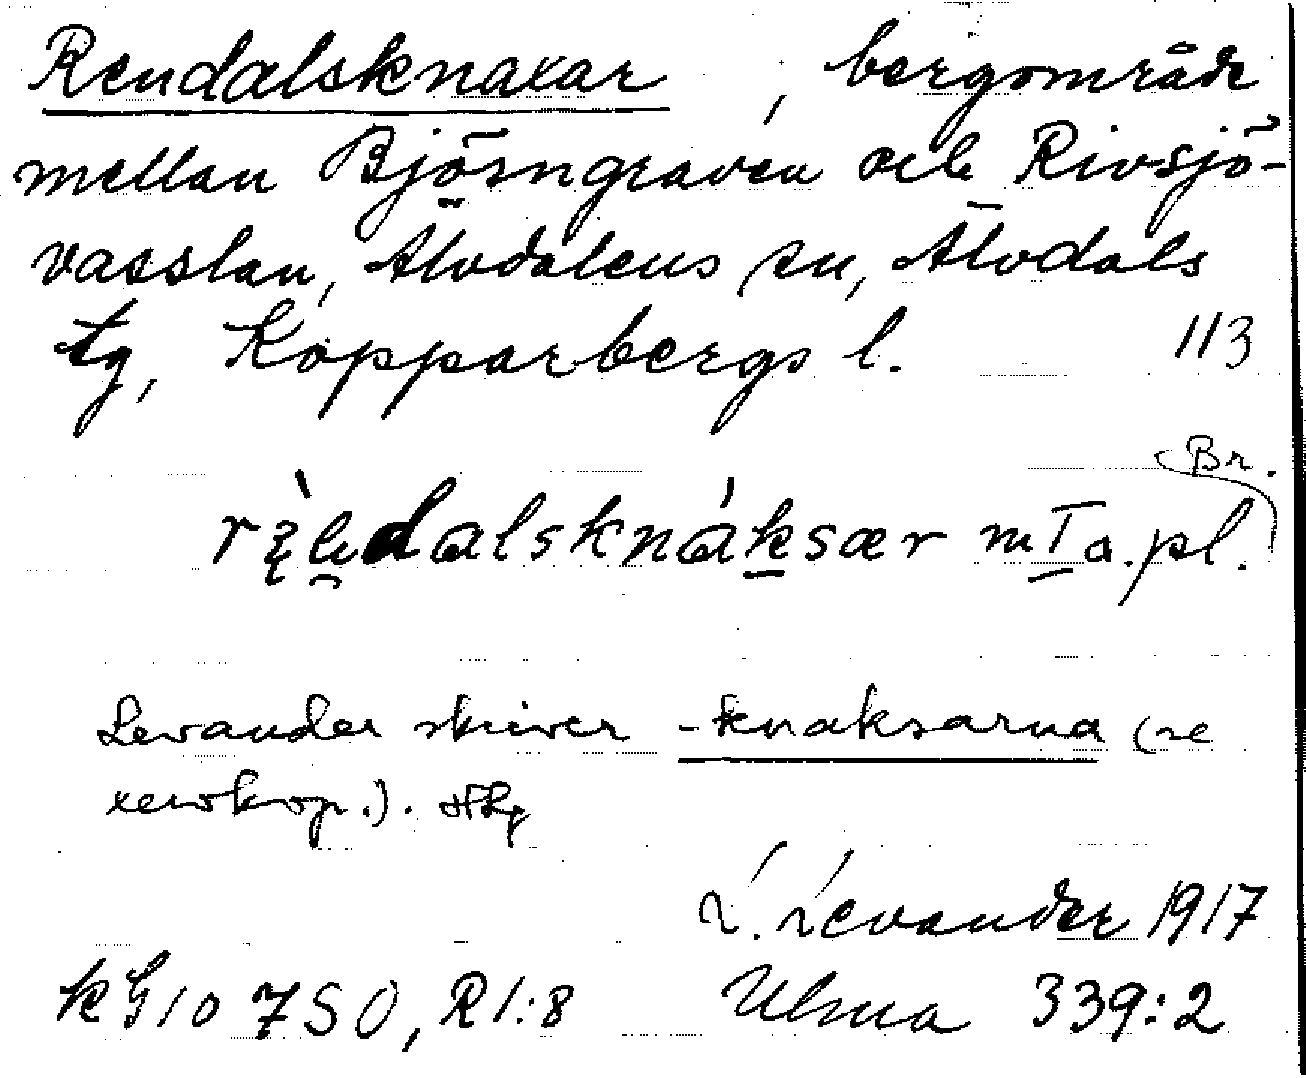 Rendalsknaxar, bergområde
mellan Björngraven och Rivsjö-
vasslan, Älvdalens sn, Älvdals
tg, Kopparbergs l. 113
Br.
dalsknáksær m Ia. pl.
Levander skriver -knaksarna (se
xerokop.).
L. Levander 1917
kG10 7SO, R1:8 Ulma 339:2